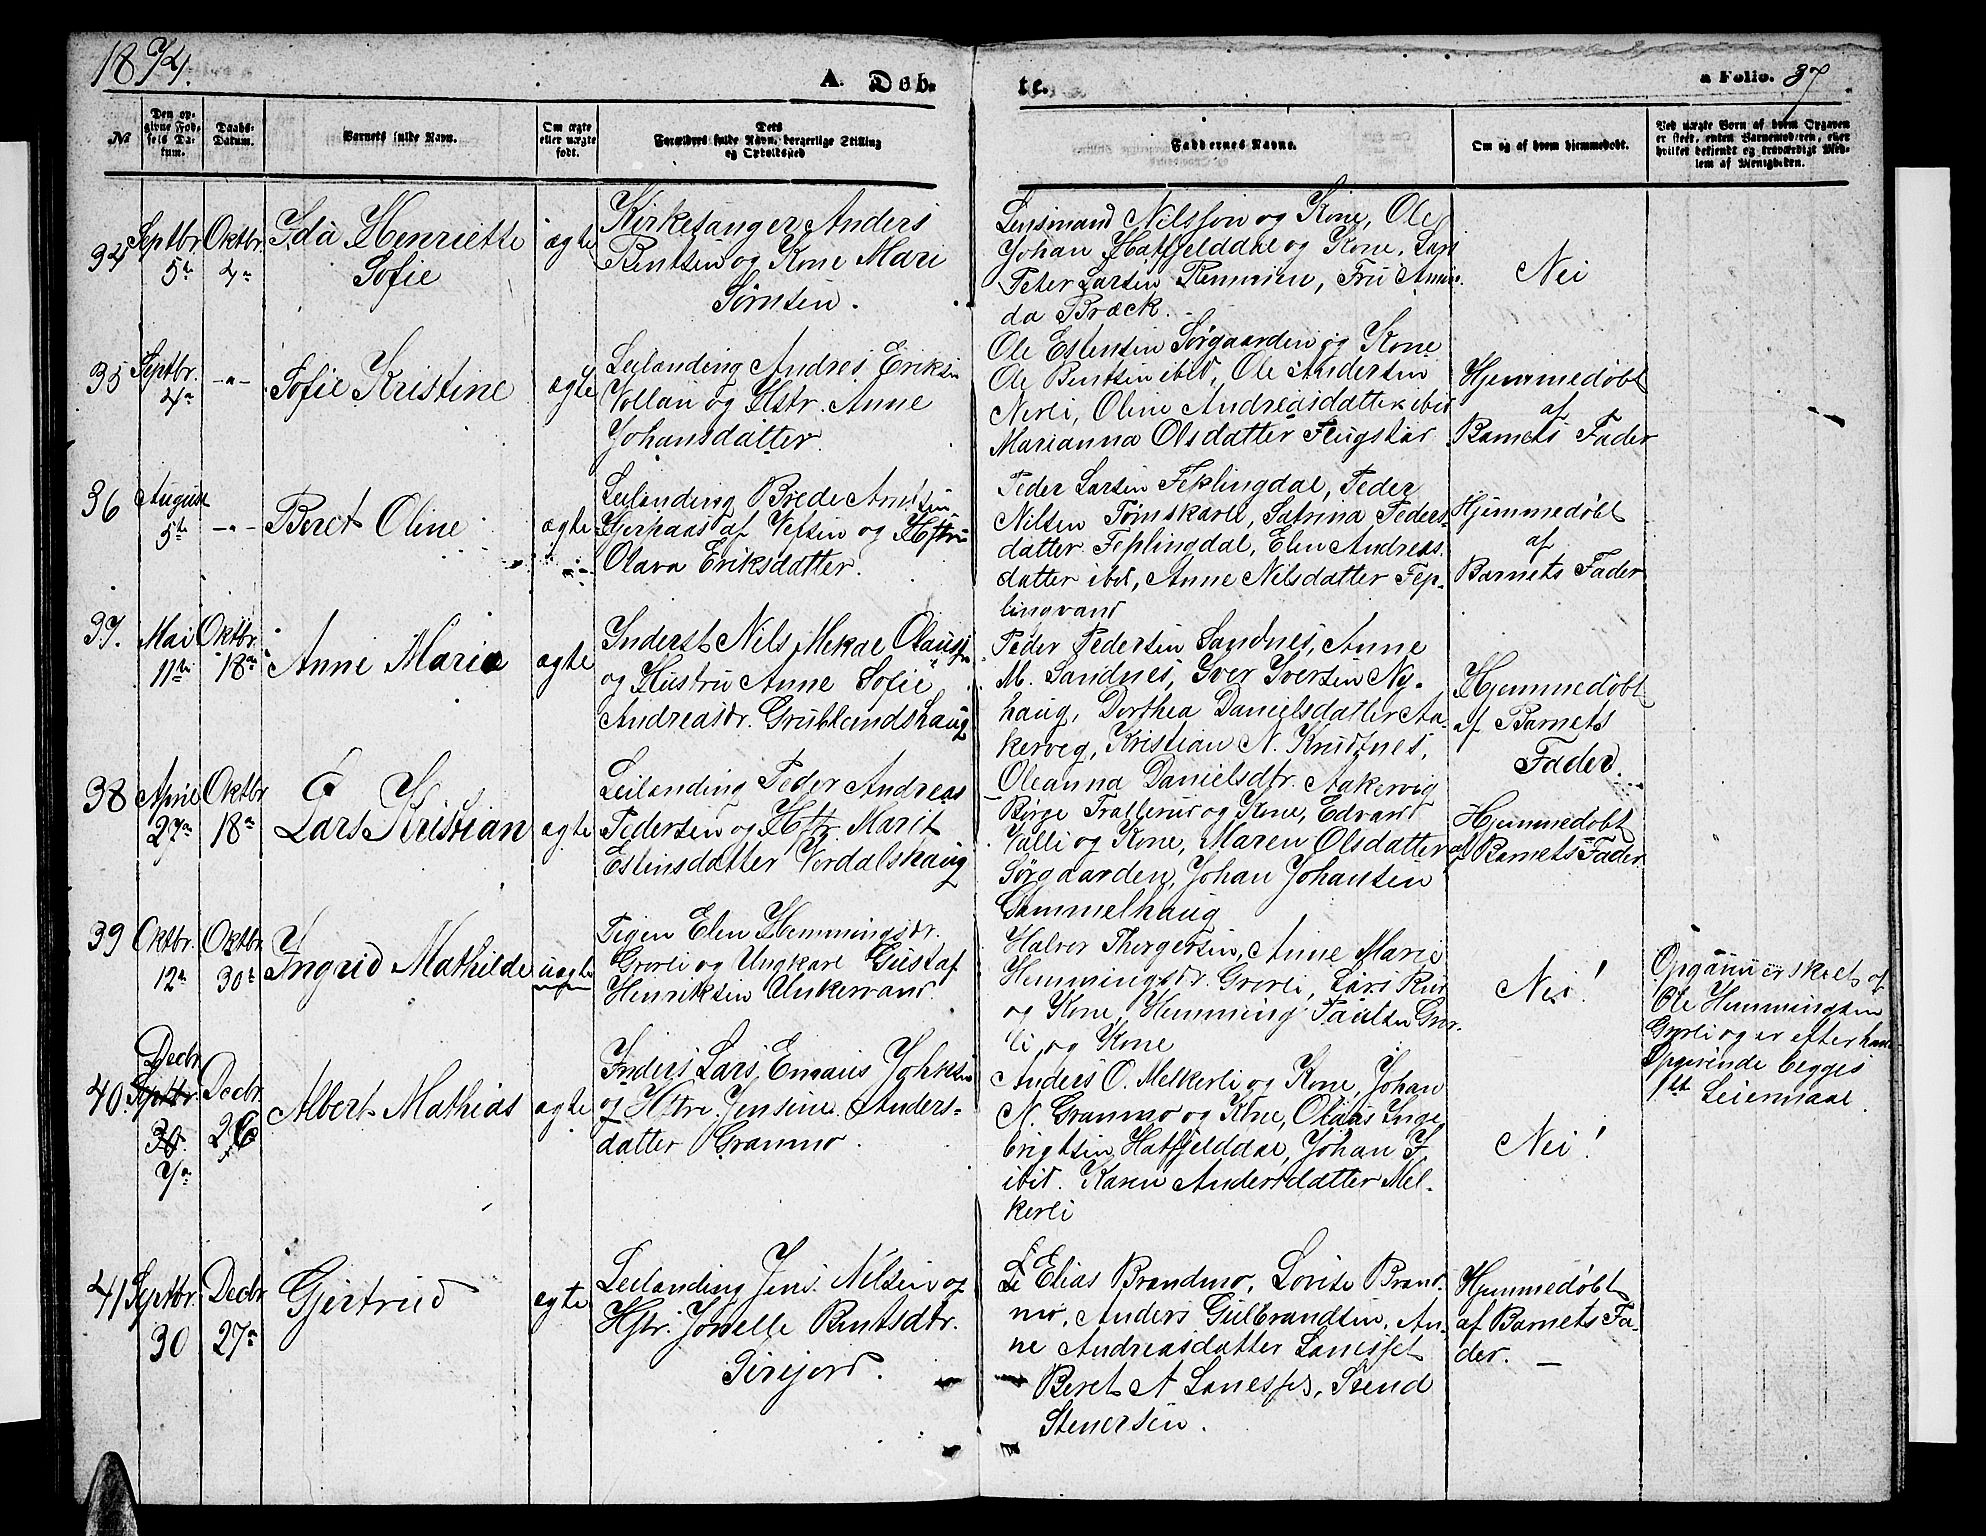 1874.
A. Døb-
te.
a Folio. 37
№
Den op-
givne Fød-
sels Da-
tum.
Daabs-
Datum.
Barnets fulde Navn.
Om ægte
eller uægte
født.
Dets
Forældres fulde Navn, borgerlige Stilling
og Opholdssted
Faddernes Navne.
Om og af hvem hjemmedøbt.
Ved uægte Børn af hvem Opgaven
er skeet, enten Barnemoderen, eller
hvilket bekjendt og troværdigt Med-
lem af Menigheden.
34 Septbr 5te
Oktbr 4de
Ida Henriette
Sofie
ægte
Kirkesanger Anders
Bentsen og Kone Mari
Sørnsen.
Lensmand Nilsson og Kone, Ole
Johan Hatfjelddal og Kone, Lars
Peter Larsen Remmen, Fru Aman-
da Bræck.
Nei
35 Septbr. 4de
-"-
Sofie Kristine
ægte
Leilænding Andres Eriksen
Vollan og Hstr. Anne
Johansdatter.
Ole Estensen Sørgaarden og Kone
Ole Bentsen ibid, Ole Andersen
Nerli, Oline Andreasdatter ibid
Marianna Olsdatter Flugstad
Hjemmedøbt
af
Barnets Fader
36 August 5te
-"-
Beret Oline
ægte
Leilænding Brede Arntsen
Gjerpaas af Vefsen og Hstru
Olava Eriksdatter.
Peder Larsen Feplingdal, Peder
Nilsen Tømskarl, Catrina Peders-
datter Feplingdal, Elen Andreas-
datter ibid, Anne Nilsdatter Fep-
lingvand
Hjemmedøbt
af
Barnets Fader
37. Mai 11te
Oktbr. 18de
Anne Marie
ægte
Inderst Nils Mekal Olausen
og Hustru Anne Sofie
Andreasdr. Grubblandshaug
Peder Pedersen Sandnes, Anne
M. Sandnes, Iver Iversen Ny-
haug, Dorthea Danielsdatter Aa-
kervig, Kristian N. Krudtnes,
Oleanna Danielsdtr. Aakervig
Hjemmedøbt
af Barnets
Fader.
38 April 27de
Oktbr 18de
Lars Kristian
ægte
Leilænding Peder Andreas
Pedersen og Hstr. Marit
Estensdatter Vordalshaug
Børge Trallerud og Kone, Edvard
Valli og Kone, Maren Olsdatter
Sørgaarden, Johan Johansen
Gammelhaug
Hjemmedøbt
af Barnets Fader
39 Oktbr. 12te
Oktbr 30te
Ingrid Mathilde
uægte
Pigen Elen Hemmingsdr.
Grorli og Ungkarl Gustaf
Henriksen Unkervand.
Halvor Thorgersen, Anne Marie
Hemmingsdr. Grorli, Lars Rui
og Kone, Hemming Paulsen Gror-
li og Kone
Nei!
Opgaven er skeet af
Ole Hemmingsen
Grorli og er efter hans
Opgivende begges
1ste Leiermaal.
40. Septbr 30. Decbr 7de
Decbr 26
Albert Mathias
ægte
Inders Lars Emaus Johnsen
og Hstru Jensine Anders-
datter Granmo.
Anders O. Melkerli og Kone, Johan
N. Granmo og Kone, Olaus Inge-
brigtsen Hatfjelddal, Johan I.
ibid. Karen Andersdatter Mel-
kerli
Nei!
41 Septbr. 30
Decbr 27de
Gjertrud
ægte
Leilænding Jens Nilsen og
Hstr. Jonelle Bentsdtr.
Pirejord.
Elias Brandmo, Lovise Brand-
mo, Anders Gulbrandsen, An-
ne Andreasdatter Lanesset
Beret A Lanesset, Svend
Stenersen.
Hjemmedøbt
af Barnets Fa-
der. —